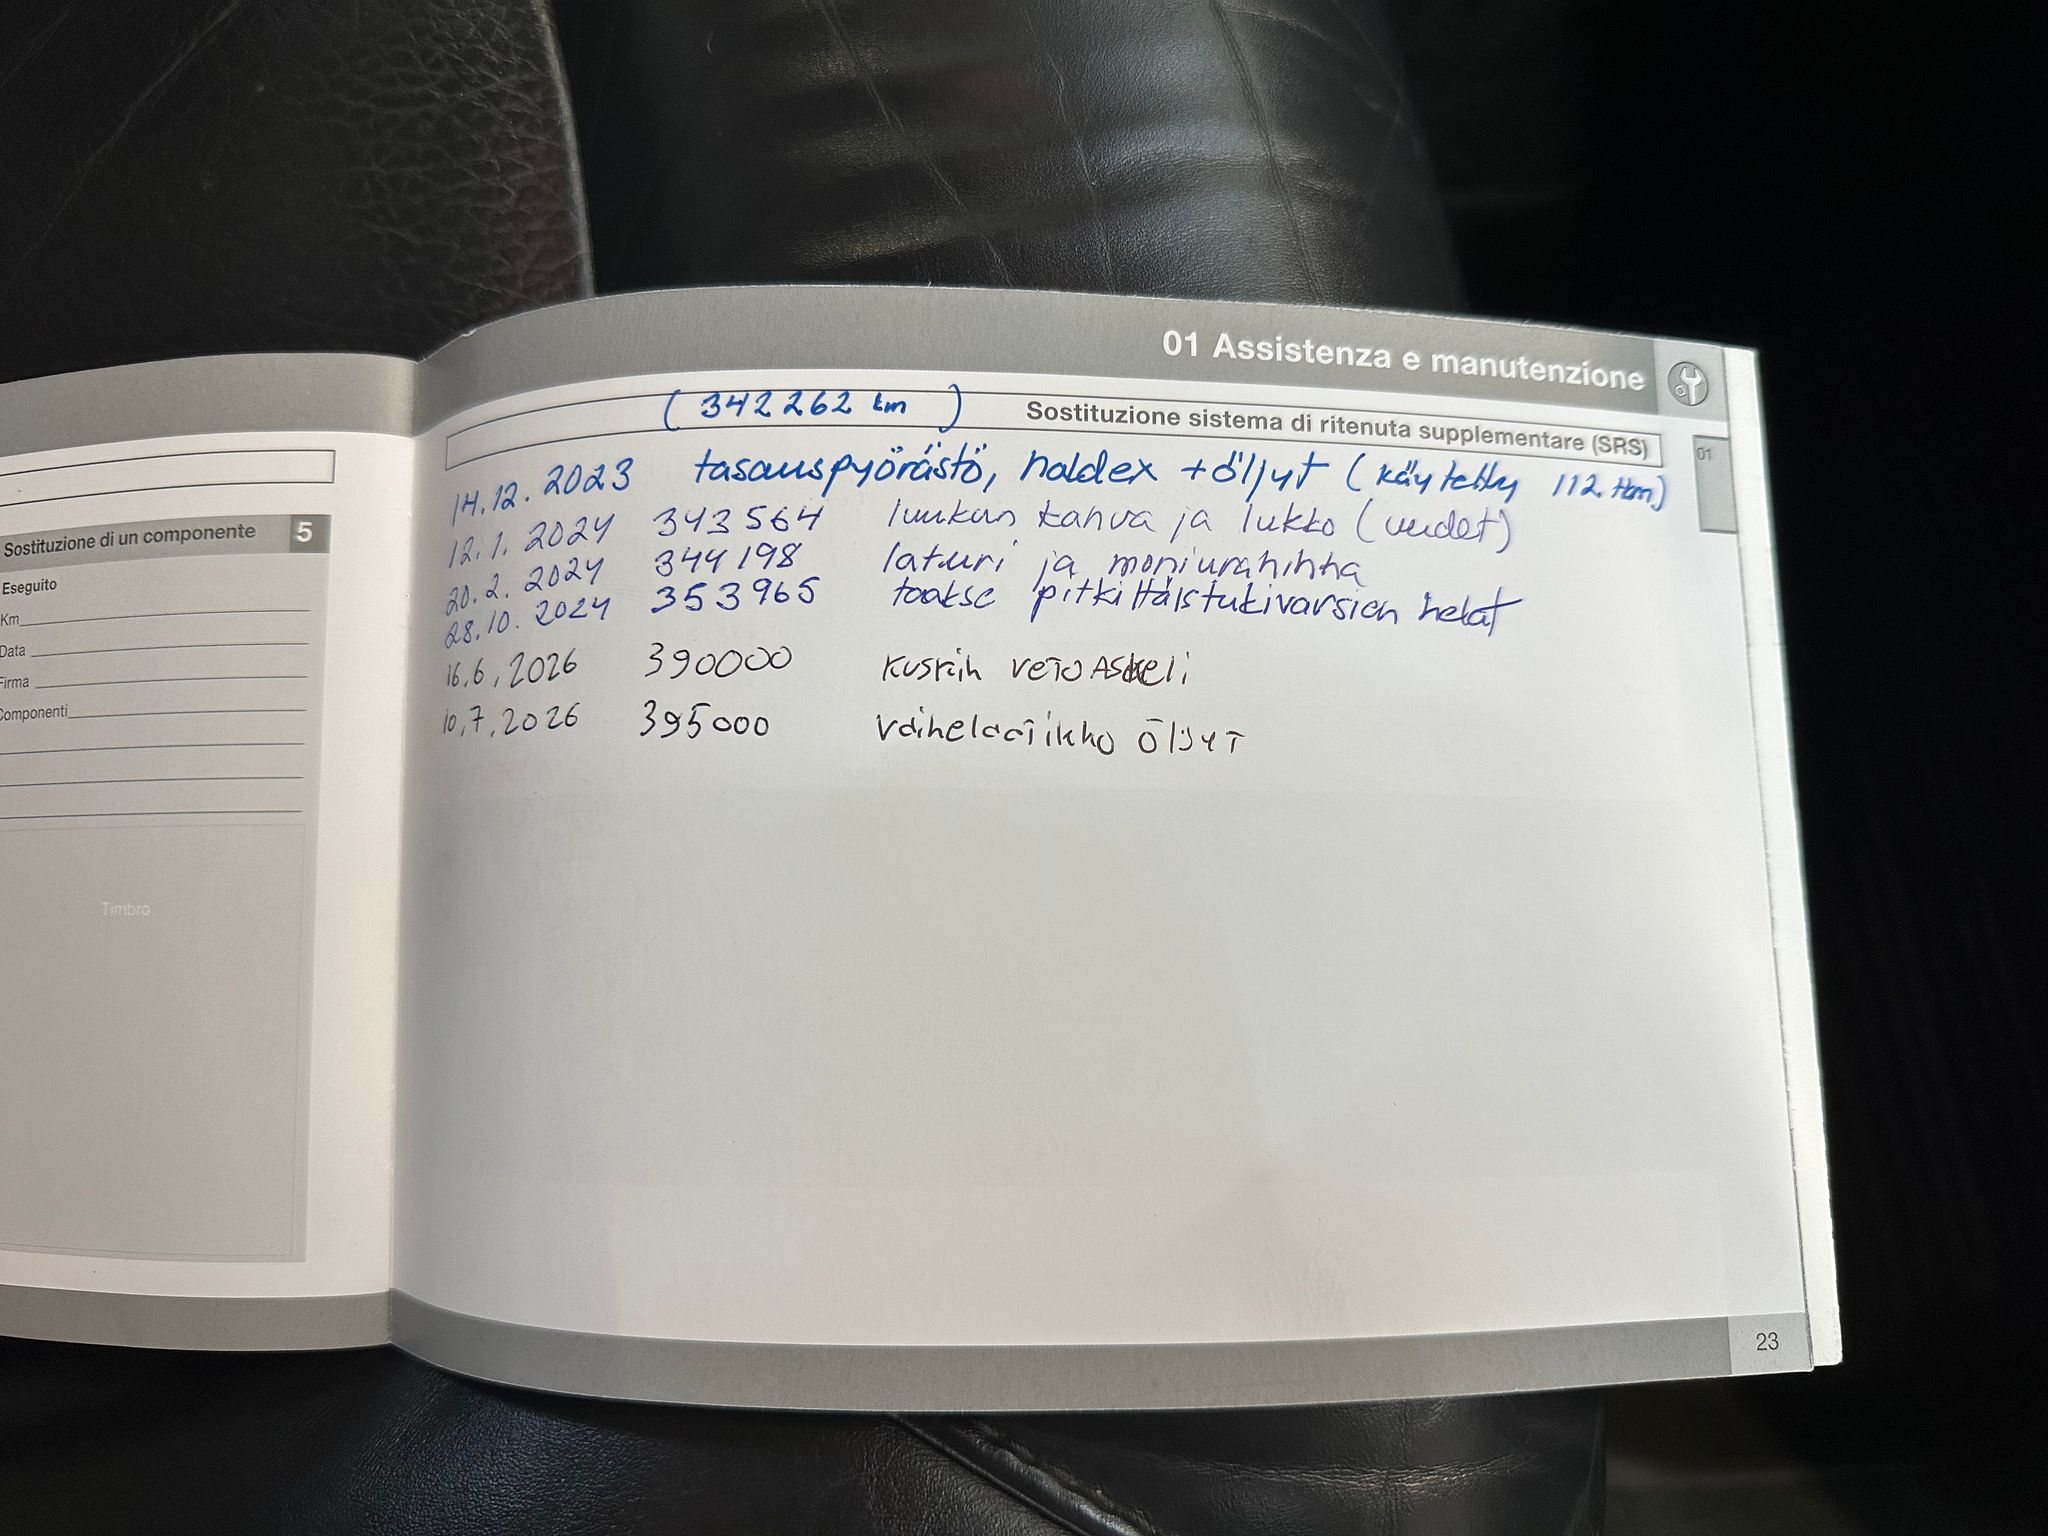 01 Assistenza e manutenzione
(342262 km)
Sostituzione sistema di ritenuta supplementare (SRS)
01
14.12.2023 tasauspyörästö, haldex + öljyt (käytetty 112.tkm)
12.1.2024 343564 luukun kahva ja lukko (uudet)
20.2.2024 344198 laturi ja moniurahihna
28.10.2024 353965 taakse pitkittäistukivarsien helat
16.6.2026 390000 kuskin vetoaskeli
10.7.2026 395000 vaihelaatikko öljyt
23
Sostituzione di un componente 5
Eseguito
Km
Data
Firma
Componenti
Timbro